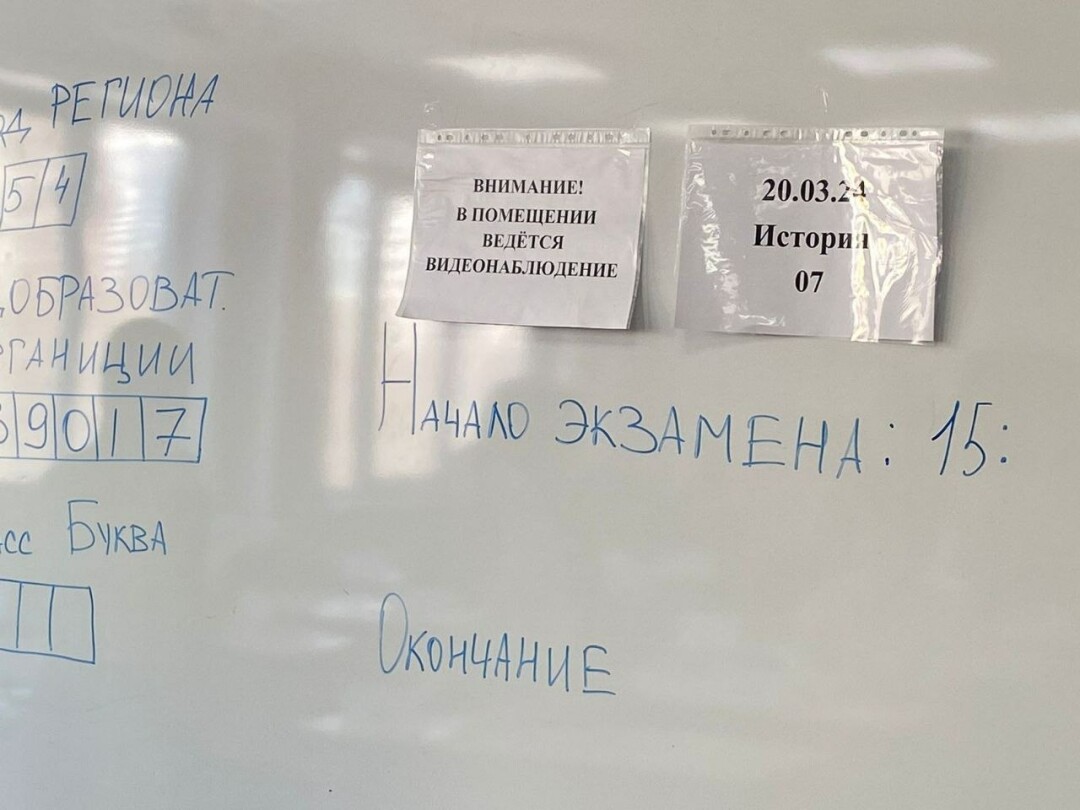 РЕГИОНА
5 4
ОБРАЗОВАТ.
ОРГАНИЦИИ
9 0 1 7
Буква
ВНИМАНИЕ!
В ПОМЕЩЕНИИ
ВЕДЁТСЯ
ВИДЕОНАБЛЮДЕНИЕ
20.03.24
История
07
НАЧАЛО ЭКЗАМЕНА: 15:
ОКОНЧАНИЕ